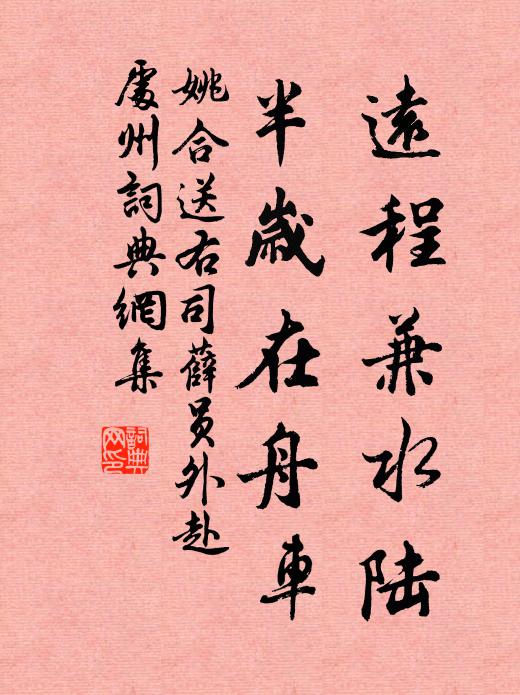 遠程兼水陆
半歲在舟車
姚合送右司薛员外赴
處州詞典網集
詞典
网印